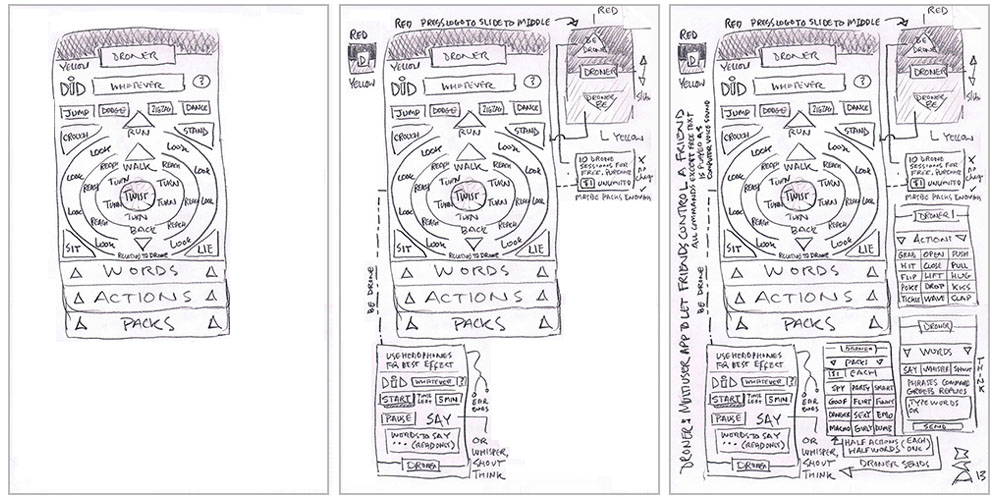 DRONER
YELLOW
DÜD
WHATEVER
?
JUMP
DODGE
ZIGZAG
DANCE
CROUCH
RUN
STAND
LOOK
LOOK
WALK
REACH
REACH
LOOK
LOOK
TURN
TURN
REACH
REACH
TWIST
LOOK
LOOK
TURN
TURN
TURN
REACH
REACH
BACK
SIT
LOOK
LOOK
LIE
RELATIVE TO DRONE
WORDS
ACTIONS
PACKS
RED PRESS LOGO TO SLIDE TO MIDDLE
RED
RED
D
YELLOW
DRONER
YELLOW
DÜD
WHATEVER
?
JUMP
DODGE
ZIGZAG
DANCE
CROUCH
RUN
STAND
LOOK
LOOK
WALK
REACH
REACH
LOOK
LOOK
TURN
TURN
REACH
REACH
TWIST
LOOK
LOOK
TURN
TURN
TURN
REACH
REACH
BACK
SIT
LOOK
LOOK
LIE
RELATIVE TO DRONE
WORDS
ACTIONS
PACKS
BE DRONE
BE
DRONE
DRONER
DRONER
BE
YELLOW
10 DRONE
SESSIONS FOR
FREE. PURCHASE
$1 UNLIMITED
MAYBE PACKS ENOUGH
USE HEADPHONES
FOR BEST EFFECT
DÜD WHATEVER ?
START TIME LEFT 5 MIN
PAUSE SAY
WORDS TO SAY
... (READ ONLY)
DRONER
EAR
BUDS
OR
WHISPER,
SHOUT
THINK
RED PRESS LOGO TO SLIDE TO MIDDLE
RED
RED
D
YELLOW
DRONER IS MULTIUSER APP TO LET FRIENDS CONTROL A FRIEND
ALL COMMANDS EXCEPT FREE TEXT
IS PLAYED AS
COMPUTER VOICE SOUND
BE DRONE
DRONER
YELLOW
DÜD
WHATEVER
?
JUMP
DODGE
ZIGZAG
DANCE
CROUCH
RUN
STAND
LOOK
LOOK
WALK
REACH
REACH
LOOK
LOOK
TURN
TURN
REACH
REACH
TWIST
LOOK
LOOK
TURN
TURN
TURN
REACH
REACH
BACK
SIT
LOOK
LOOK
LIE
RELATIVE TO DRONE
WORDS
ACTIONS
PACKS
BE
DRONE
DRONER
DRONER
BE
YELLOW
10 DRONE
SESSIONS FOR
FREE. PURCHASE
$1 UNLIMITED
MAYBE PACKS ENOUGH
DRONER
ACTIONS
GRAB OPEN PUSH
HIT CLOSE PULL
FLIP LIFT HUG
POKE DROP KISS
TICKLE WAVE SLAP
USE HEADPHONES
FOR BEST EFFECT
DÜD WHATEVER ?
START TIME LEFT 5 MIN
PAUSE SAY
WORDS TO SAY
... (READ ONLY)
DRONER
EAR
BUDS
OR
WHISPER,
SHOUT
THINK
DRONER
PACKS
$1 EACH
SPY PARTY SMART
GOOF FLIRT FUNNY
DANGER SEXY EMO
MACHO GUILTY DUMB
DRONER
WORDS
SAY WHISPER SHOUT
THINK
PHRASES COMMAND
GREETS REPLIES
TYPE WORDS
OR
SEND
HALF ACTIONS (EACH)
HALF WORDS (ONE)
DRONER SENDS
13